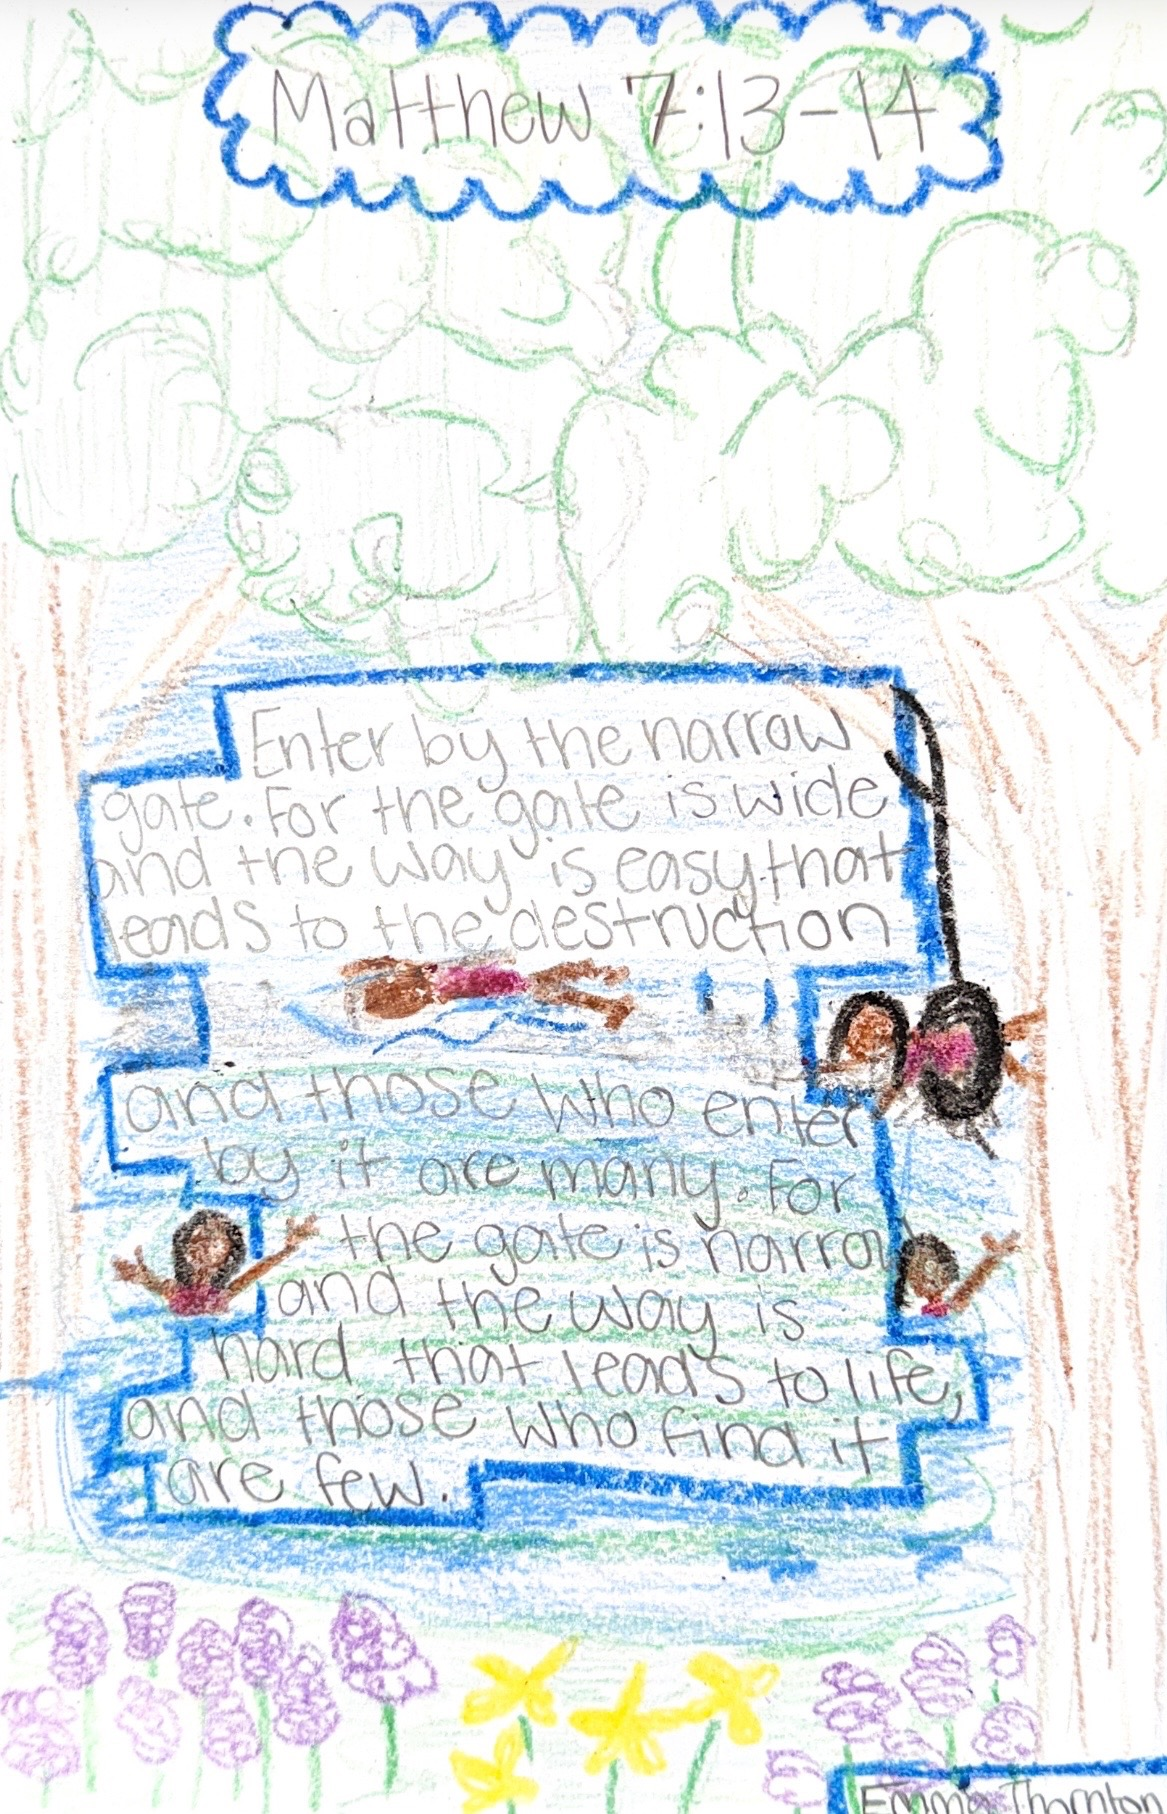 Matthew 7:13-14
Enter by the narrow
gate. For the gate is wide
and the way is easy that
leads to the destruction
and those who enter
by it are many. For
the gate is narrow
and the way is
hard that leads to life,
and those who find it
are few.
Emma Thornton